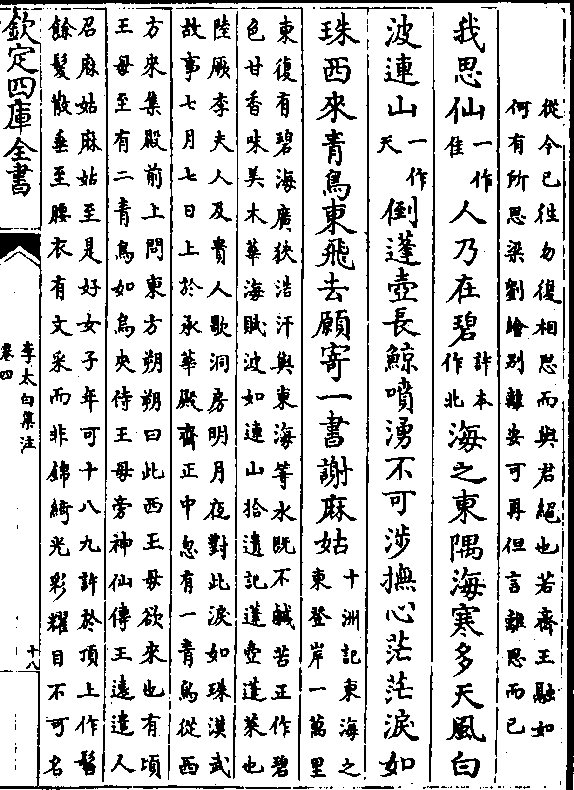 從今已往勿復相思而與君絶也若齊王融如
何有所思梁劉繪别離安可再但言離思而已
我思仙一作佳人乃在碧許本作北海之東隅海寒多天風白
波連山一作天倒蓬壺長鯨噴湧不可涉撫心茫茫淚如
珠西來青鳥東飛去願寄一書謝麻姑十洲記東海之東登岸一萬里
東復有碧海廣狹浩汗與東海等水既不鹹苦正作碧
色甘香味美木華海賦波如連山拾遺記蓬壺蓬萊也
陸厥李夫人及貴人歌洞房明月夜對此淚如珠漢武
故事七月七日上於承華殿齋正中忽有一青鳥從西
方來集殿前上問東方朔朔曰此西王母欲來也有頃
王母至有二青鳥如烏夾侍王母旁神仙傳王遠遣人
召麻姑麻姑至是好女子年可十八九許於頂上作髻
餘髮散垂至腰衣有文采而非錦綺光彩耀目不可名
欽定四庫全書
李太白集注
卷四
十八